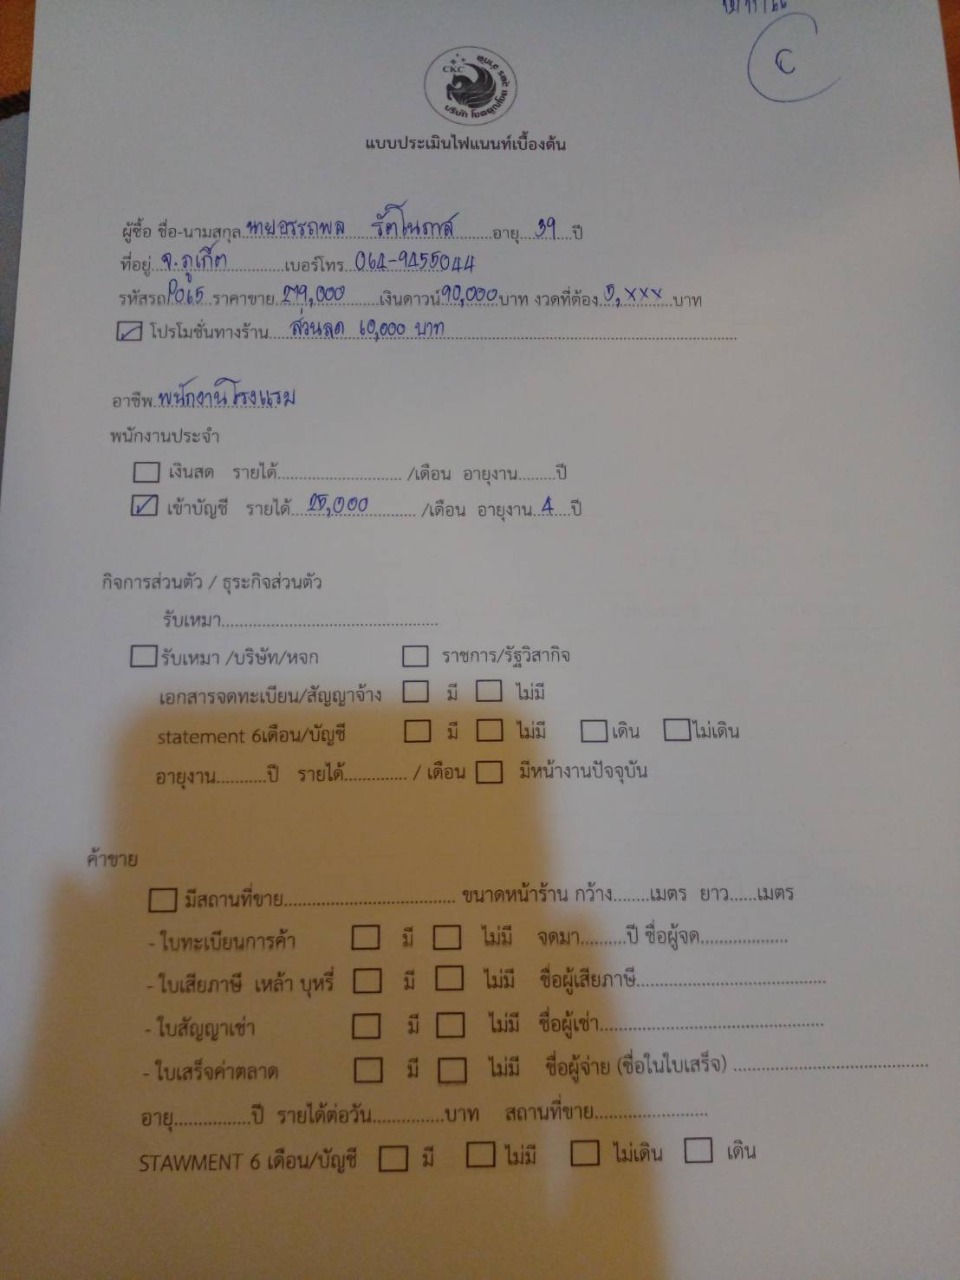 C
CKC
บริษัท โชคคูณโชค
แบบประเมินไฟแนนท์เบื้องต้น
ผู้ซื้อ ชื่อ-นามสกุล นายอรรถพล รัตโนภาส อายุ 39 ปี
ที่อยู่ จ.ภูเก็ต เบอร์โทร 064-9455044
รหัสรถ P065 ราคาขาย 279,000 เงินดาวน์ 90,000 บาท งวดที่ต้อง 5,xxx บาท
โปรโมชั่นทางร้าน ส่วนลด 60,000 บาท
อาชีพ พนักงานโรงแรม
พนักงานประจำ
เงินสด รายได้.............................. /เดือน อายุงาน.........ปี
เข้าบัญชี รายได้ 25,000 /เดือน อายุงาน 4 ปี
กิจการส่วนตัว / ธุระกิจส่วนตัว
รับเหมา.....................................................
รับเหมา /บริษัท/หจก ราชการ/รัฐวิสากิจ
เอกสารจดทะเบียน/สัญญาจ้าง มี ไม่มี
statement 6เดือน/บัญชี มี ไม่มี เดิน ไม่เดิน
อายุงาน...........ปี รายได้.............. / เดือน มีหน้างานปัจจุบัน
ค้าขาย
มีสถานที่ขาย....................................... ขนาดหน้าร้าน กว้าง........เมตร ยาว......เมตร
- ใบทะเบียนการค้า มี ไม่มี จดมา..........ปี ชื่อผู้จด...................
- ใบเสียภาษี เหล้า บุหรี่ มี ไม่มี ชื่อผู้เสียภาษี..........................................
- ใบสัญญาเช่า มี ไม่มี ชื่อผู้เช่า..................................................
- ใบเสร็จค่าตลาด มี ไม่มี ชื่อผู้จ่าย (ชื่อในใบเสร็จ) ...........................................
อายุ.................ปี รายได้ต่อวัน................บาท สถานที่ขาย.........................
STAWMENT 6 เดือน/บัญชี มี ไม่มี ไม่เดิน เดิน